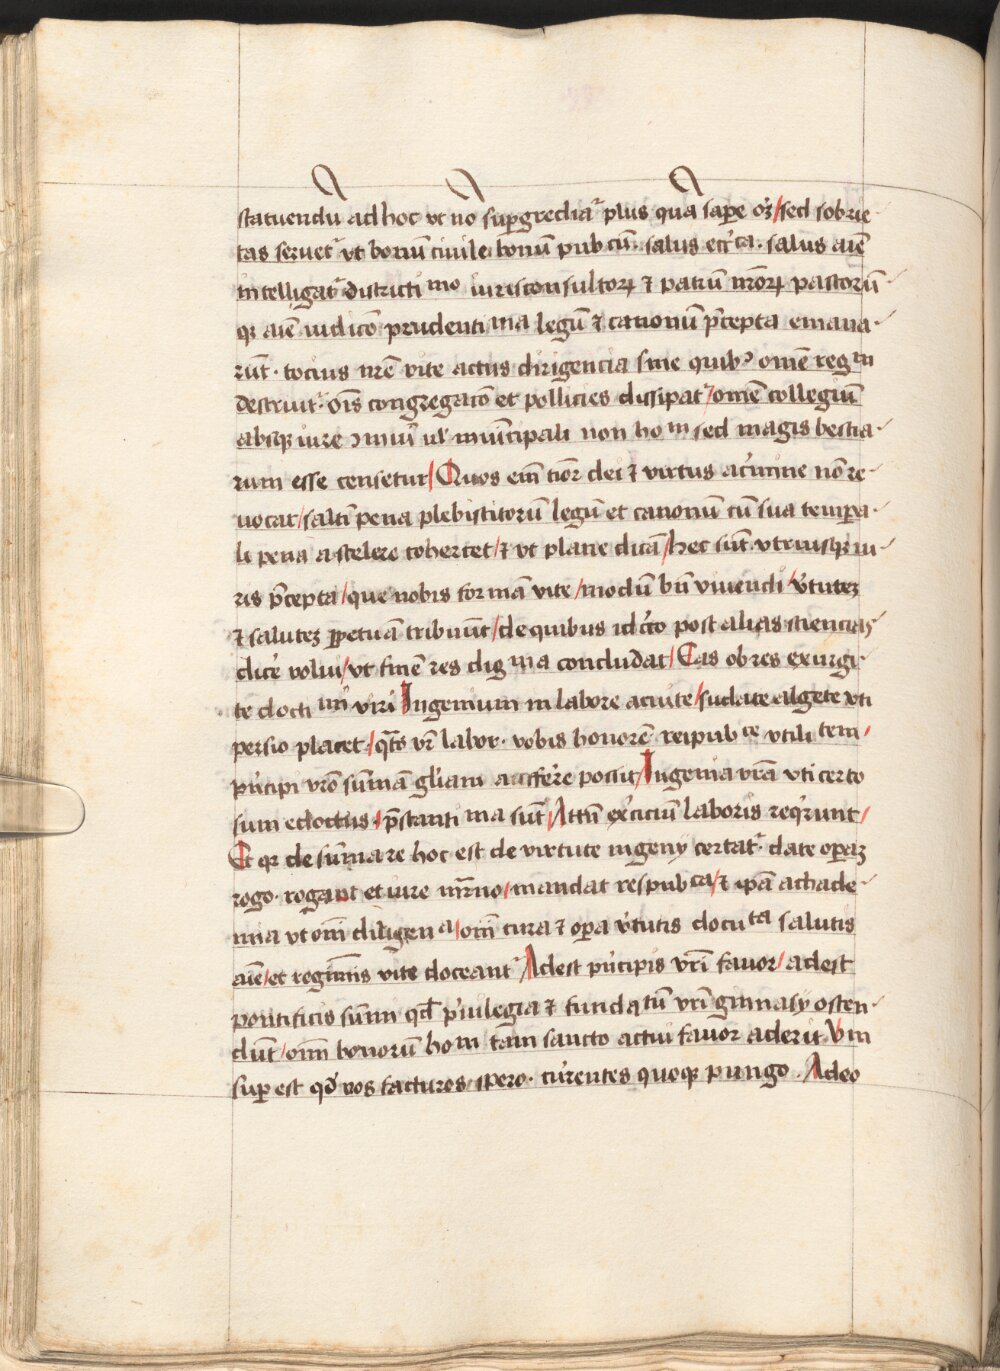 statuendū ad hoc vt nō suꝑgrediaᷣ plus quā saꝑe oꝫ / sed sobrie-
tas seruetᷣ vt bonū ciuile bonū pubcū · salus eccᷓca · salus aīe
intelligatᷣ districtimo iurisconsultoꝝ ⁊ patrū nr̄oꝝ pastorū
qꝫ aīe iudicō prudentima legū ⁊ canonū p̄cepta emana-
rūt · tocius nr̄e vite actus dirigencia sine quibꝰ om̄e regm
destruitᷣ · oīs congregacō et pollicies dissipatᷣ / om̄e collegiū
absqꝫ iure ꝯmuī vl' muīcipali non hom sed magis bestia-
rum esse censetur / Quos em̄ tīor dei ⁊ virtus acumine nō re-
uocat / saltī pena plebistitorū legū et canonū cū sua tempaꝉ-
li pena a scelere cohercet / ⁊ vt plane dicā / hec sūt vtriusqꝫ iu-
ris p̄cepta / que nobis formā vite / modū bn̄ viuendi / v̓tutez
⁊ salutez ꝑpetuā tribuūt / de quibus idcīro post alias sciencias
dice̓ volui / vt fine̓ res digma concludat / Eas ob res exurgi-
te doctimi viri Ingenium in labore acuite / sudate algete vti
persio placet / qt̄s vr̄ labor · vobis honorē reipubce vtilitem /
p̓ncipi vr̄o sum̄ā gl̓iam aufferre possit / Ingenia vr̄a vti certo
sum edoctus / p̄stantima sūt / Attn̄ exe̓iciū laboris req̓runt /
Et qꝫ de sum̄a re hoc est de virtute ingenÿ certatᷣ · date oꝑaꝫ
rogo · rogant et iure nr̄mo / mandat respubca / ⁊ ipā achade-
mia vt om̄i diligena / om̄ cura ⁊ oꝑa v̓tutis docuta salutis
aīe / et regīmis vite doceantᷣ Adest p̓ncipis vr̄i fauor / adest
pontificis sum̄i qd̄ p̓iuilegia ⁊ fundatū vr̄i gimnasÿ osten-
dūt / om̄ bonorū hom tam sancto actui fauor aderit Vm
suꝑest qd̓ vos facturos spero · cur̓entes quoqꝫ pungo · Adeo